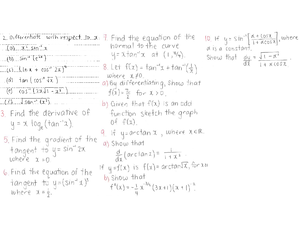 2. Differentiate with respect to x
(a) x² sin⁻¹x
(b) sin⁻¹
(c)
(d) tan (cos⁻¹ x)
(e) cos⁻¹
(f)
3. Find the derivative of
y = x log (tan⁻¹ x).
5. Find the gradient of the
tangent to y = sin⁻¹ 2x
where x = 0
6. Find the equation of the
tangent to y = (sin⁻¹ x)²
where x = ½.
7. Find the equation of the
normal to the curve
y = x tan⁻¹ x at (1, π/4).
8. Let f(x) = tan⁻¹ x + tan⁻¹ (1/x)
where x ≠ 0.
a) By differentiating, show that
f(x) = π/2 for x > 0.
b) Given that f(x) is an odd
function sketch the graph
of f(x).
9. If y = arctan x, where x ∈ R
a) Show that
d/dx (arctan x) = 1/(1 + x²)
If y = f(x) = arctan √x, for x>0
b) Show that
f''(x) = -¼ x^(-3/2) (3x+1)(x+1)⁻²
10. If y = sin⁻¹ [(a + cos x)/(1 + a cos x)], where
a is a constant.
Show that
dy/dx = - √(1 - a²)/(1 + a cos x)